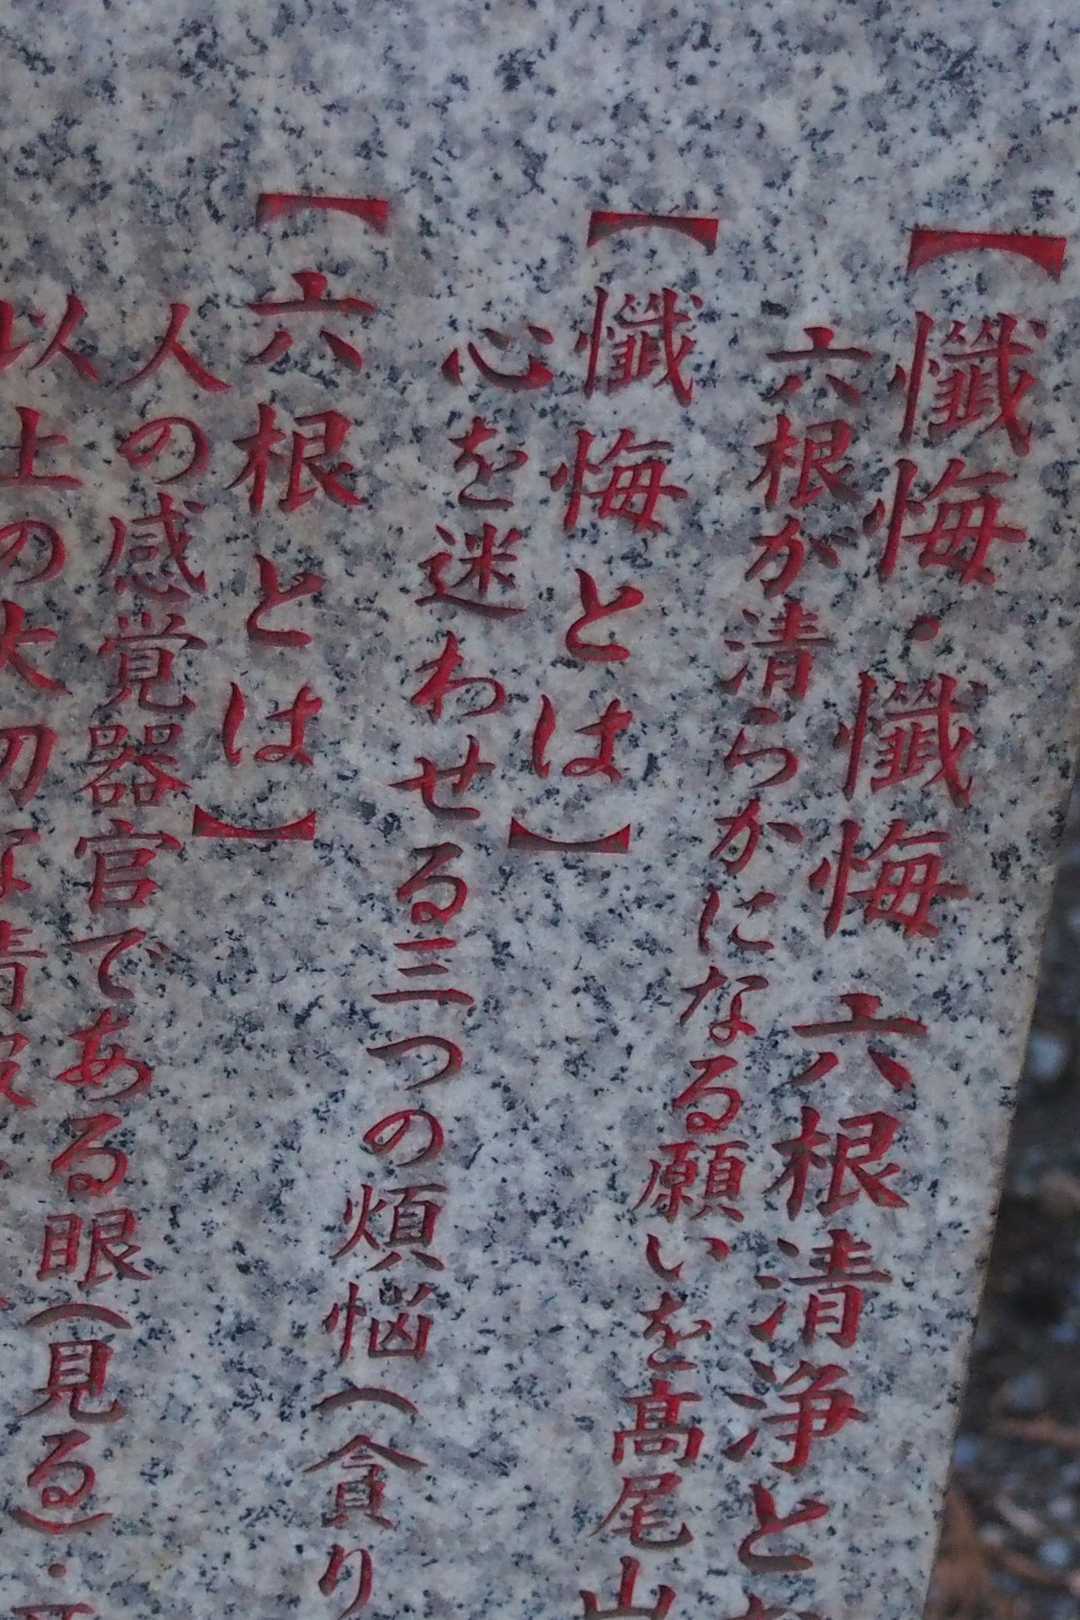 【懺悔・懺悔 六根清浄と
六根が清らかになる願いを高尾山
【懺悔とは】
心を迷わせる三つの煩悩(貪り
【六根とは】
人の感覚器官である眼(見る)・
以上の大切な